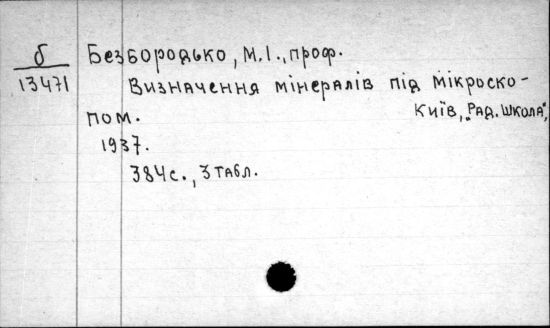 б
13471
Безбородько, М.І., проф.
Визначення мінералів під мікроско-
пом.
Київ, „Рад. школа",
1937.
384с., 3 табл.